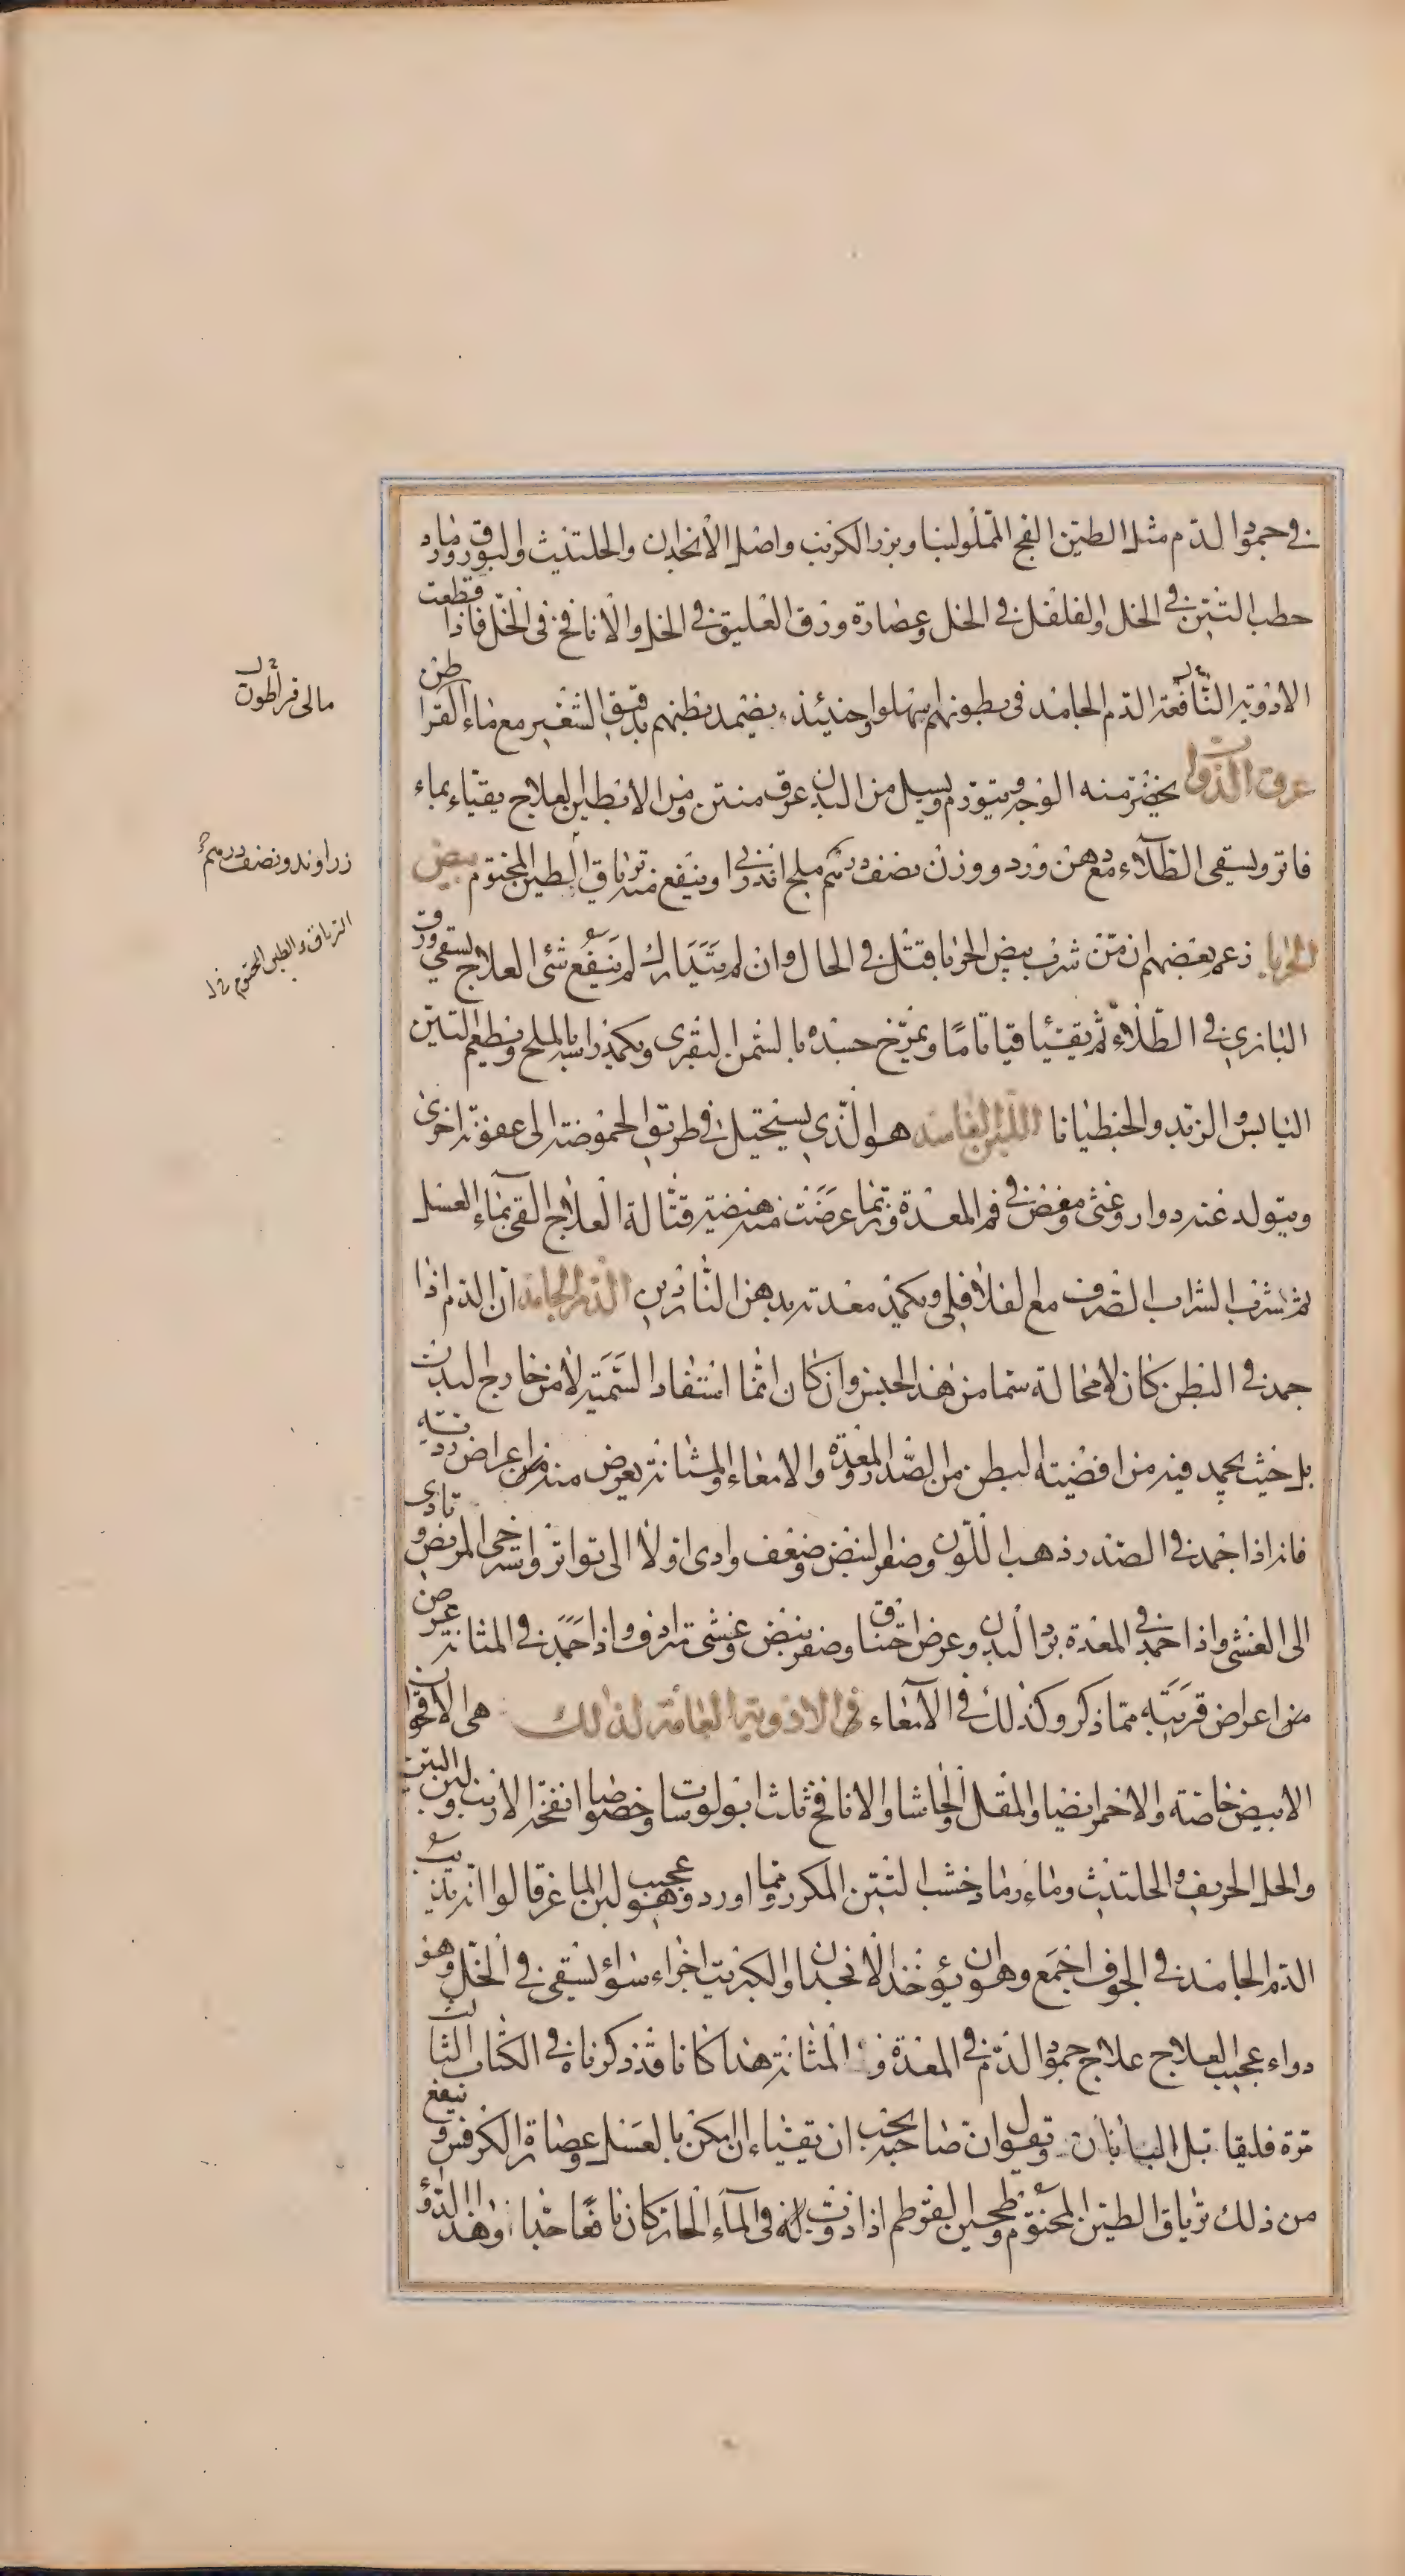 في جمود الدم مثل الطين الفج المملو لبنا وبزر الكرنب واصل الانجدان والحلتيث والبورق ورماد
حطب التين في الخل والفلفل في الخل وعصارة ورق العليق في الخل والانافخ في الخل فاذا قطعت
الادوية النافعة الدم الجامد في بطونهم يسهلوا وحينئذ يضمد بطنهم بدقيق الشعير مع ماء القراطن
عرق الدواب يخضر منه الوجه ويتورم ويسيل من البدن عرق منتن ومن الابطين العلاج يقياء بماء
فاتر ويسقى الطلاء مع دهن ورد ووزن نصف درهم ملح اندراني او ينفع منه ترياق الطين المختوم بيض
الحربا زعم بعضهم ان من شرب بيض الحربا قتل في الحال وان لم يتدارك لم ينفع شئ العلاج يسقى ورق
البازي في الطلاء ثم يقيئا قياتاما ويمرخ جسده بالسمن البقري ويكمد راسه بالملح ويطعم التين
اليابس والزبد والجنطيانا اللبن الفاسد هو الذي يستحيل في طريق الحموضة الى عفونة اخرى
ويتولد عنه دوار وغثى ومغص في فم المعدة وربما عرضت منه هيضة قتالة العلاج القي بماء العسل
ثم شرب الشراب الصرف مع الفلافلى ويكمد معدته بدهن الناردين الدم الجامد ان الدم اذا
جمد في البطن كان لا محالة سما من هذا الجنس وان كان انما استفاد السمية لا من خارج البدن
بل حيث يجمد فيه من افضيته البطن من الصدر والمعدة والامعاء والمثانة يعرض منه من اعراض رديه
فانه اذا جمد في الصدر ذهب اللون وصغر النبض وضعف وادى اولا الى تواتر واسترخى المريض وتادى
الى الغشى واذا جمد في المعدة برد البدن وعرض اختناق وصغر نبض وغشى مترادف واذا جمد في المثانة عرض
من اعراض قريبة مما ذكر وكذلك في الامعاء في الادوية العامة لذلك هى الاقحوان
الابيض خاصة والاحمر ايضا والمقل والحاشا والانافخ ثلث ابولوسات وخصوصا انفخة الارنب ولبن التين
والخل الحريف والحلتيث وماء رماد خشب التين المكرر ومما اورد وهو عجيب لبن الماعز قالوا انه يذيب
الدم الجامد في الجوف اجمع وهو ان يؤخذ الانجدان والكبريت اجزاء سواء ليسقى في الخل وهو
دواء عجيب العلاج علاج جمود الدم في المعدة و المثانة هذا كانا قد ذكرناه في الكتاب الثالث
مرة فليقا بل البابان ونقول ان صاحبه يجب ان يقيئاء ان امكن بالعسل وعصارة الكرفس وينفع
من ذلك ترياق الطين المختوم وطحين القرطم اذا ذوب له في الماء الحار كان نافعا جدا وهذا الدواء
مالى قراطون
زراوند ونصف درهم
الترياق والطين المختوم